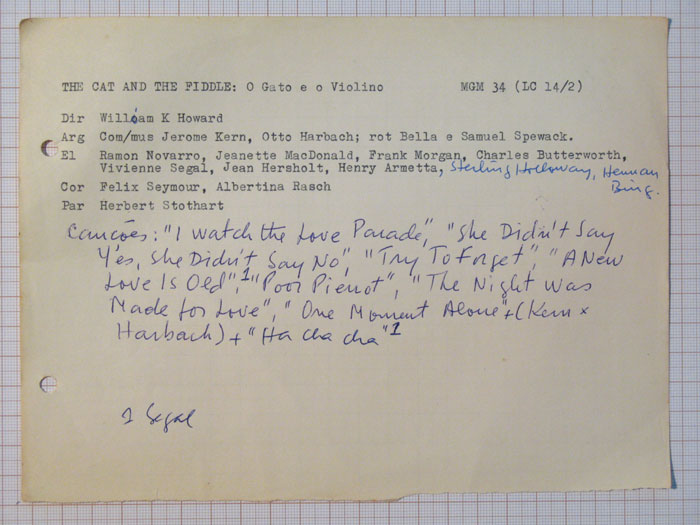 THE CAT AND THE FIDDLE: O Gato e o Violino MGM 34 (LC 14/2)
Dir William K Howard
Arg Com/mus Jerome Kern, Otto Harbach; rot Bella e Samuel Spewack.
El Ramon Novarro, Jeanette MacDonald, Frank Morgan, Charles Butterworth,
Vivienne Segal, Jean Hersholt, Henry Armetta, Sterling Holloway, Herman
Bing.
Cor Felix Seymour, Albertina Rasch
Par Herbert Stothart
Canções: "I watch the Love Parade", "She Didn't Say
Yes, She Didn't Say No", "Try To Forget", "A New
Love Is Old",1 "Poor Pierrot", "The Night was
Made for Love", "One Moment Alone" + (Kern x
Harbach) + "Ha cha cha"1
1 Segal